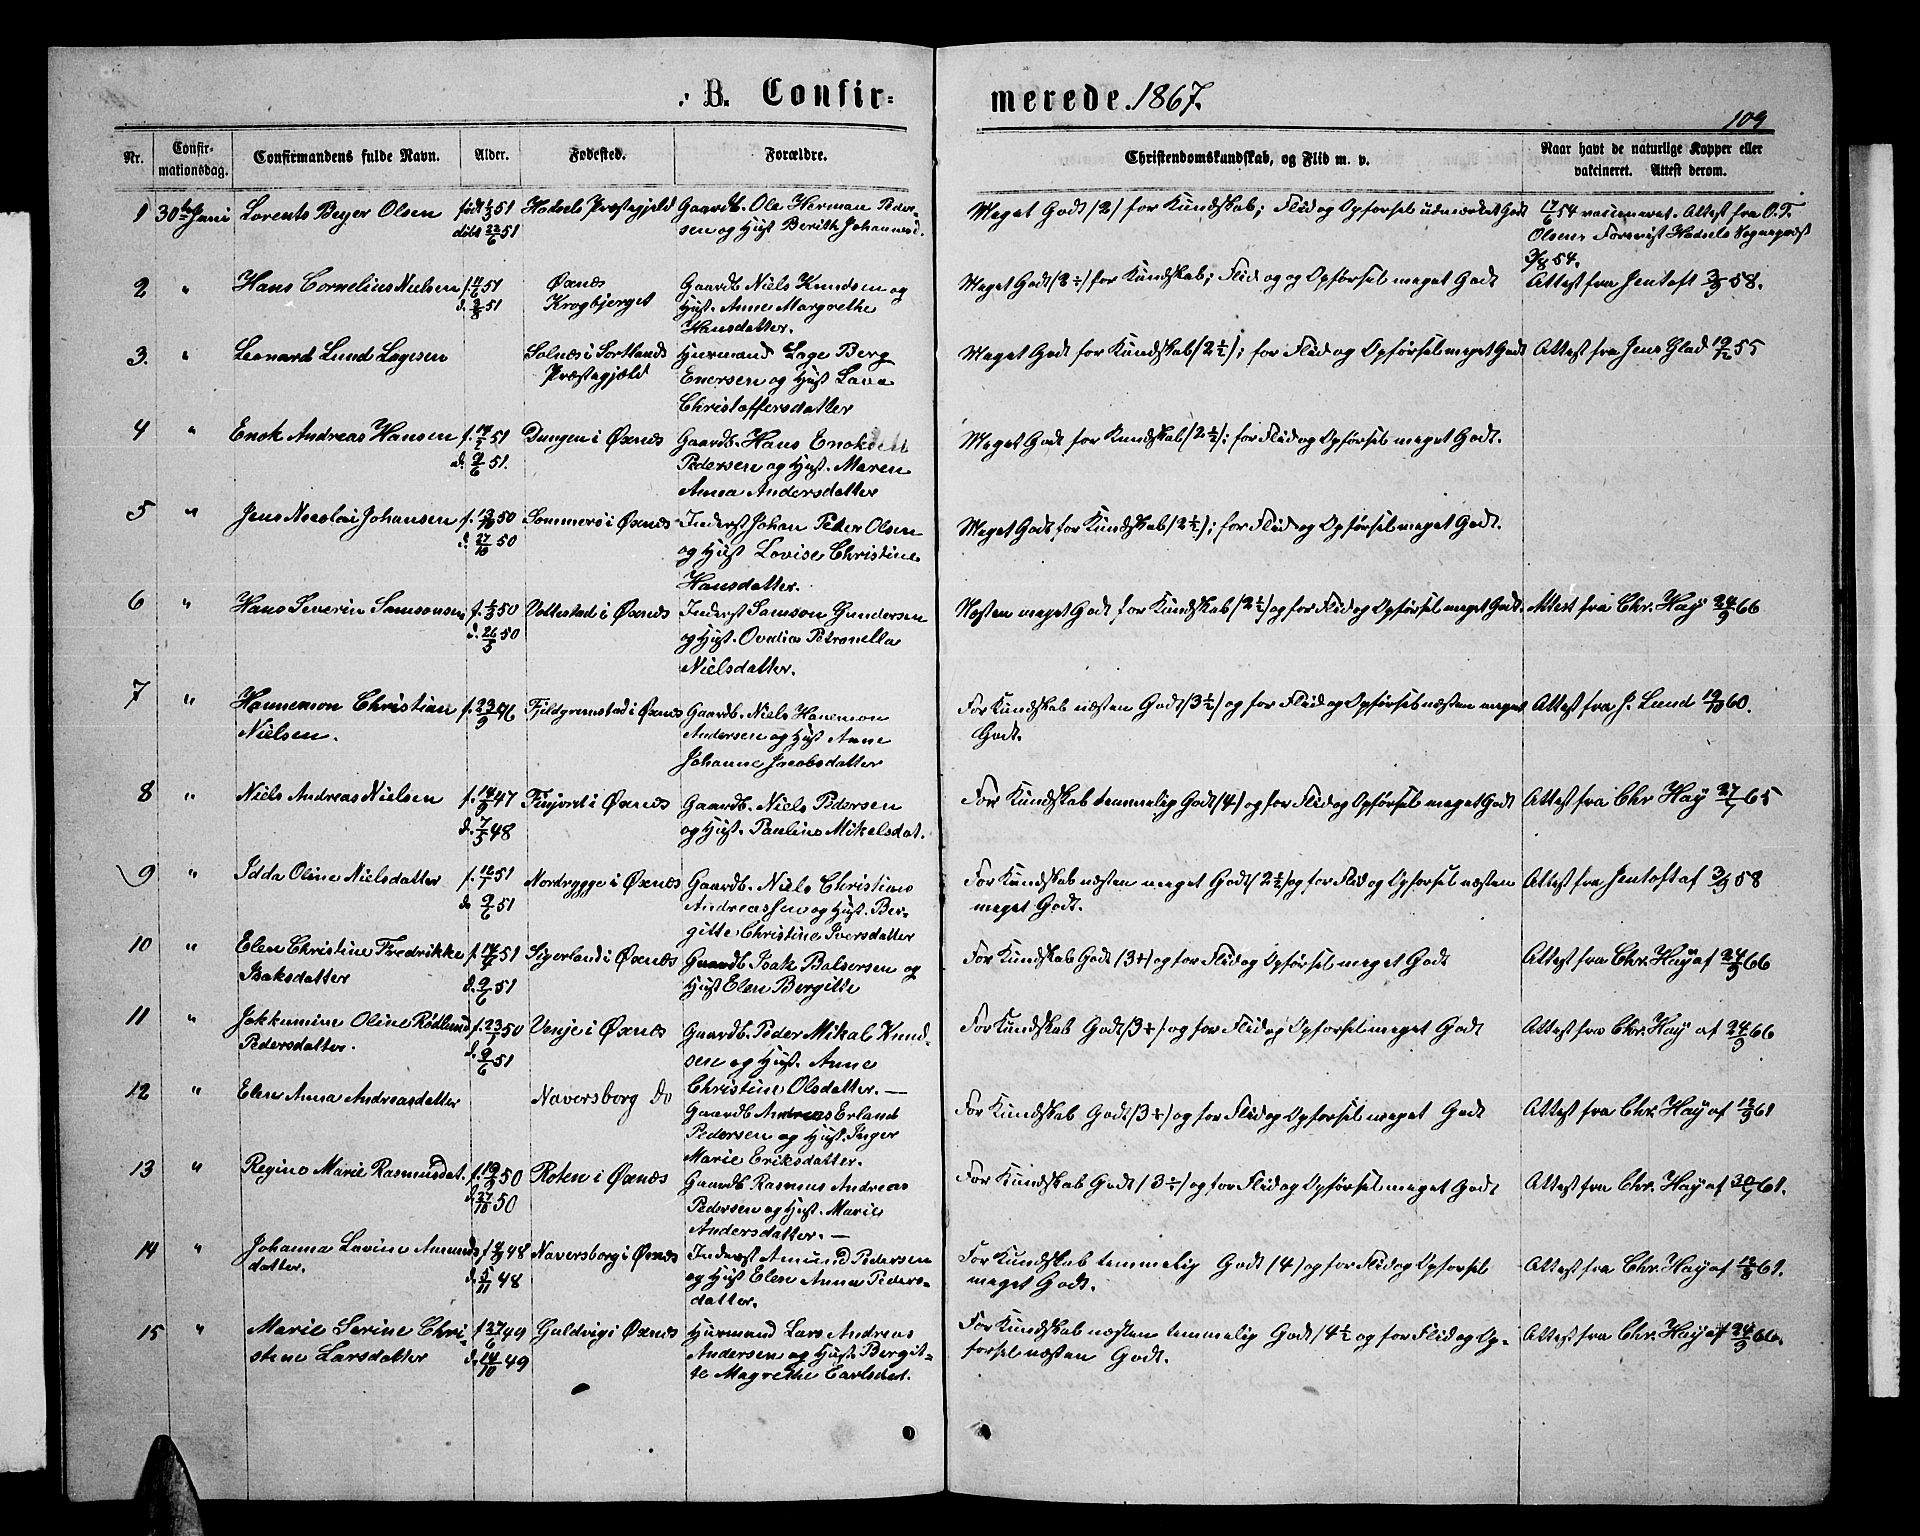 B. Confir-
merede. 1867.
109
Nr.
Confir-
mationsdag.
Confirmandens fulde Navn.
Alder.
Fødested.
Forældre.
Christendomskundskab, og Flid m. v.
Naar havt de naturlige Kopper eller
vakcineret. Attest derom.
1 30te Juni Lorents Beyer Olsen født 1/3 51 Hadsels Præstegjeld Gaardb. Ole Herman Peder- Meget Godt (2) for Kundskab; Flid og Opførsel udmærket Godt 17/6 54 vaccineret. Attest fra O. T.
døbt 22/6 51 sen og Hust Berith Johannesd. Olsen Forevist Hadsels Sognepræst
54.
2 " Hans Cornelius Nielsen f. 51 Øxnæs Gaardb. Niels Knudsen og Meget Godt (2 ÷) for Kundskab; Flid og og Opførsel meget Godt Attest fra Jentoft 3/9 58.
d. 3/8 51 Krogbjerget Hust. Anne Margrethe
Hansdatter.
3. " Leonard Lund Lagesen Solnæs i Sortlands Huusmand Lage Berg Meget Godt for Kundskab (2 ½); for Flid og Opførsel meget Godt Attest fra Jens Glad 55
Præstegjeld Enersen og Hust Lava
Christoffersdatter
4 " Enok Andreas Hansen f. 51 Dungen i Øxnæs Gaardb. Hans Enok Meget Godt for Kundskab (2 ½); for Flid og Opførsel meget Godt.
d. 9/6 51. Pedersen og Hust. Maren
Anna Andersdatter
5 " Jens Nicolai Johansen f. 50 Sommerø i Øxnæs Inderst Johan Peter Olsen Meget Godt for Kundskab (2 ½); for Flid og Opførsel meget Godt.
d. 27/10 50 og Hust Lovise Christine
Hansdatter.
6 " Hans Severin Samsonsen f. 1/3 50 Vottestad i Øxnæs Inderst Samson Gundersen Næsten meget Godt for Kundskab (2 ½) og for Flid og Opførsel meget Godt. Attest fra Chr. Hay 24/9 66
d. 26/5 50 og Hust. Ovedia Petronella
Nielsdatter.
7 " Hannemon Christian f. 23/9 46 Fjeldgremstad i Øxnæs Gaardb. Niels Hanemon For Kundskab næsten Godt (3 ½) og for Flid og Opførsel næsten meget Attest fra J. Lund 19/10 60.
Nielsen. Andersen og Hust Anne Godt.
Johanne Jacobsdatter
8 " Niels Andreas Nielsen f. 14/9 47 Finjord i Øxnæs Gaardb. Niels Pedersen For Kundskab temmelig Godt (4) og for Flid og Opførsel meget Godt Attest fra Chr Hay 27/7 65
d. 7/5 48 og Hust. Pauline Mikelsdat.
9 " Idda Oline Nielsdatter f. 12/1 51 Nordrygge i Øxnæs Gaardb. Niels Christian For Kundskab næsten meget Godt (2 ½) og for Flid og Opførsel næsten Attest fra Jentoft af 3/9 58
d. 9/6 51 Andreassen og Hust. Ber- meget Godt.
gitte Christine Iversdatter
10 " Elen Christine Fredrikke f. 51 Sigerland i Øxnæs Gaardb Isak Balsersen og For Kundskab Godt (3+) og for Flid og Opførsel meget Godt Attest fra Chr. Hay af 24/9 66
Isaksdatter d. 9/6 51 Hust Elen Bergitte
11 " Jokkumine Oline Rødlund f. 23/7 50 Venje i Øxnæs Gaardb. Peder Mikal Knud- For Kundskab Godt (3÷) og for Flid og Opførsel meget Godt Attest fra Chr. Hay af 24/9 66
Pedersdatter. d. 9/6 51 sen og Hust. Anne
Christine Olsdatter. —
12 " Elen Anna Andreasdatter Naversborg Do Gaardb Andreas Erland For Kundskab Godt (3÷) og for Flid og Opførsel meget Godt Attest fra Chr. Hay af 12/9 61
Pedersen og Hust. Inger
Marie Eriksdatter.
13 " Regine Marie Rasmusdat. f. 19/9 50 Roten i Øxnæs Gaardb Rasmus Andreas For Kundskab Godt (3 ÷) og for Flid og Opførsel meget Godt Attest fra Chr. Hay af 30/7 61.
d. 27/10 50 Pedersen og Hust. Marie
Andersdatter. —
14 " Johanna Lavine Amunds- f 4/9 48 Naversborg i Øxnæs Inderst Amund Pedersen For Kundskab temmelig Godt (4) og for Flid og Opførsel Attest fra Chr. Hay af 12/8 61.
datter. d. 5/11 48 og Hust Elen Anna Peders- meget Godt.
datter.
15 " Marie Serine Chri- f 27/6 49 Guldvig i Øxnæs Huusmand Lars Andreas For Kundskab næsten temmelig Godt (4 ½ og for Flid og Op- Attest fra Chr. Hay af 24/9 66.
stine Larsdatter d. 14/10 49 Andersen og Hust. Bergit- førsel næsten Godt.
te Magrethe Carlsdat.